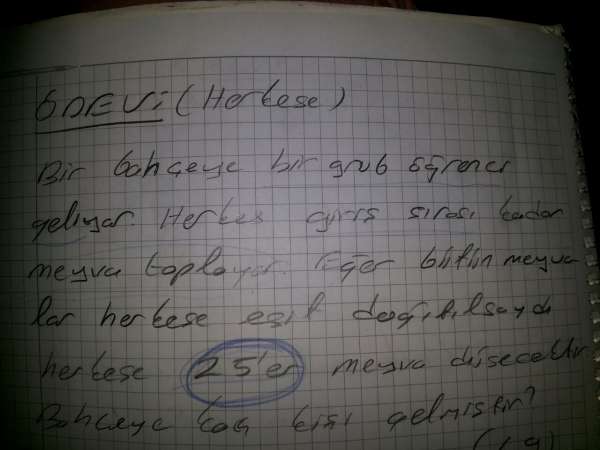 ÖDEVİ (Herkese)
Bir bahçeye bir grub öğrenci
geliyor. Herkes giriş sırası kadar
meyva toplayor. Eğer bütün meyva
lar herkese eşit dağıtılsaydı
herkese 25'er meyva düşecektir.
Bahçeye kaç kişi gelmiştir?